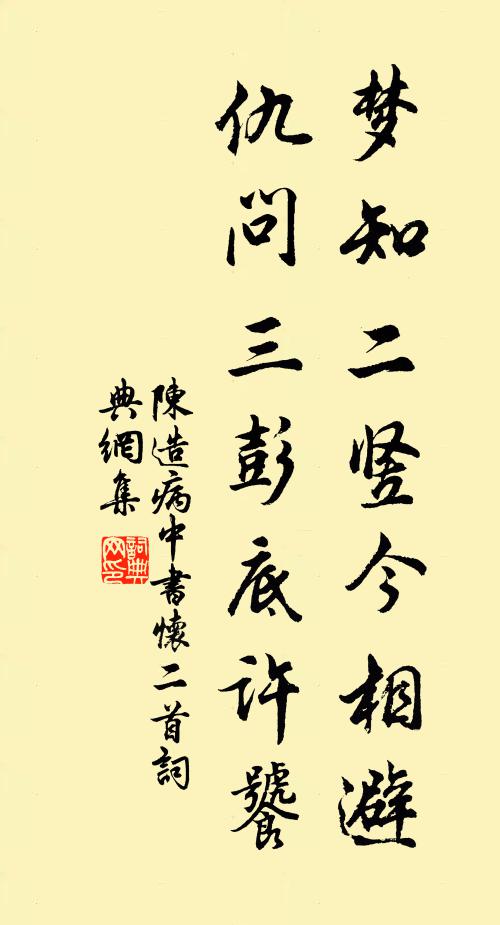 梦知二竖今相避
仇问三彭底许饕
陳造病中書懷二首詞
典網集
詞典
网印